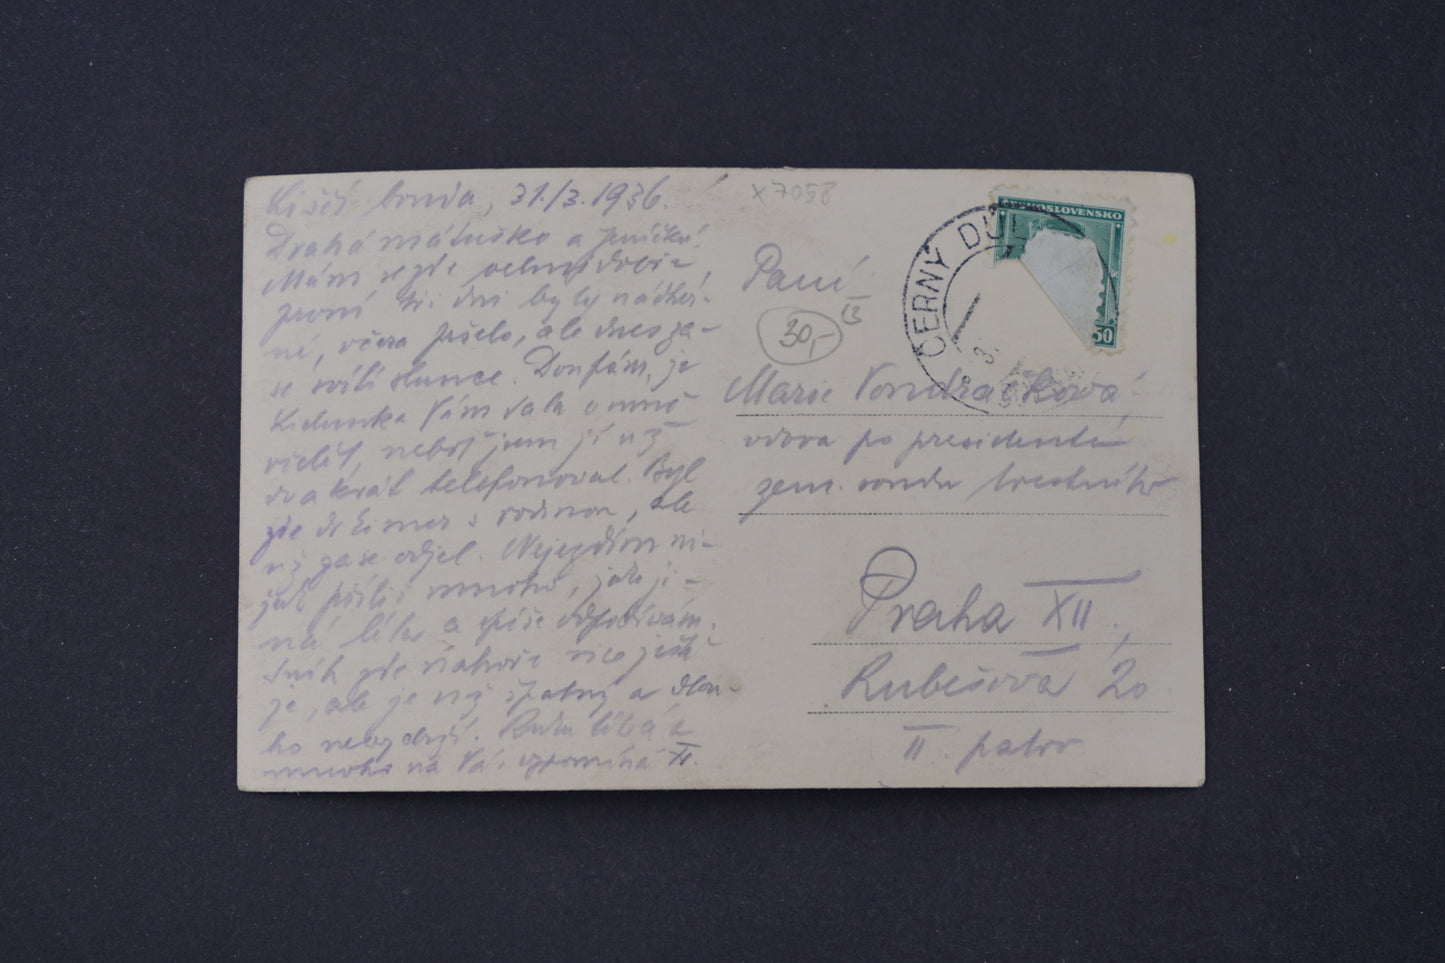 Liščí bouda, 31./3. 1936.
Drahá matuško a Jeničku!
Mám se zde velmi dobře,
první tři dni byly nádher-
né, včera pršelo, ale dnes za-
se svítí slunce. Doufám, že
Lidunka Vám dala o mně
vědět, neboť jsem jí už
dvakrát telefonoval. Byl
zde s rodinou, ale
už zase odjel. Nejezdím ni-
jak příliš mnoho, jako ji-
ná léta a spíše odpočívám.
Sníh zde nahoře sice ještě
je, ale je už špatný a dlou-
ho nevydrží. Ruku líbá a
mnoho na Vás vzpomíná
x 7058
ČESKOSLOVENSKO
50
ČERNÝ DŮ
Paní
30,-
Marie Vondráčková,
vdova po presidentu
zem. soudu trestního
Praha XII.,
Rubešova 20
II. patro